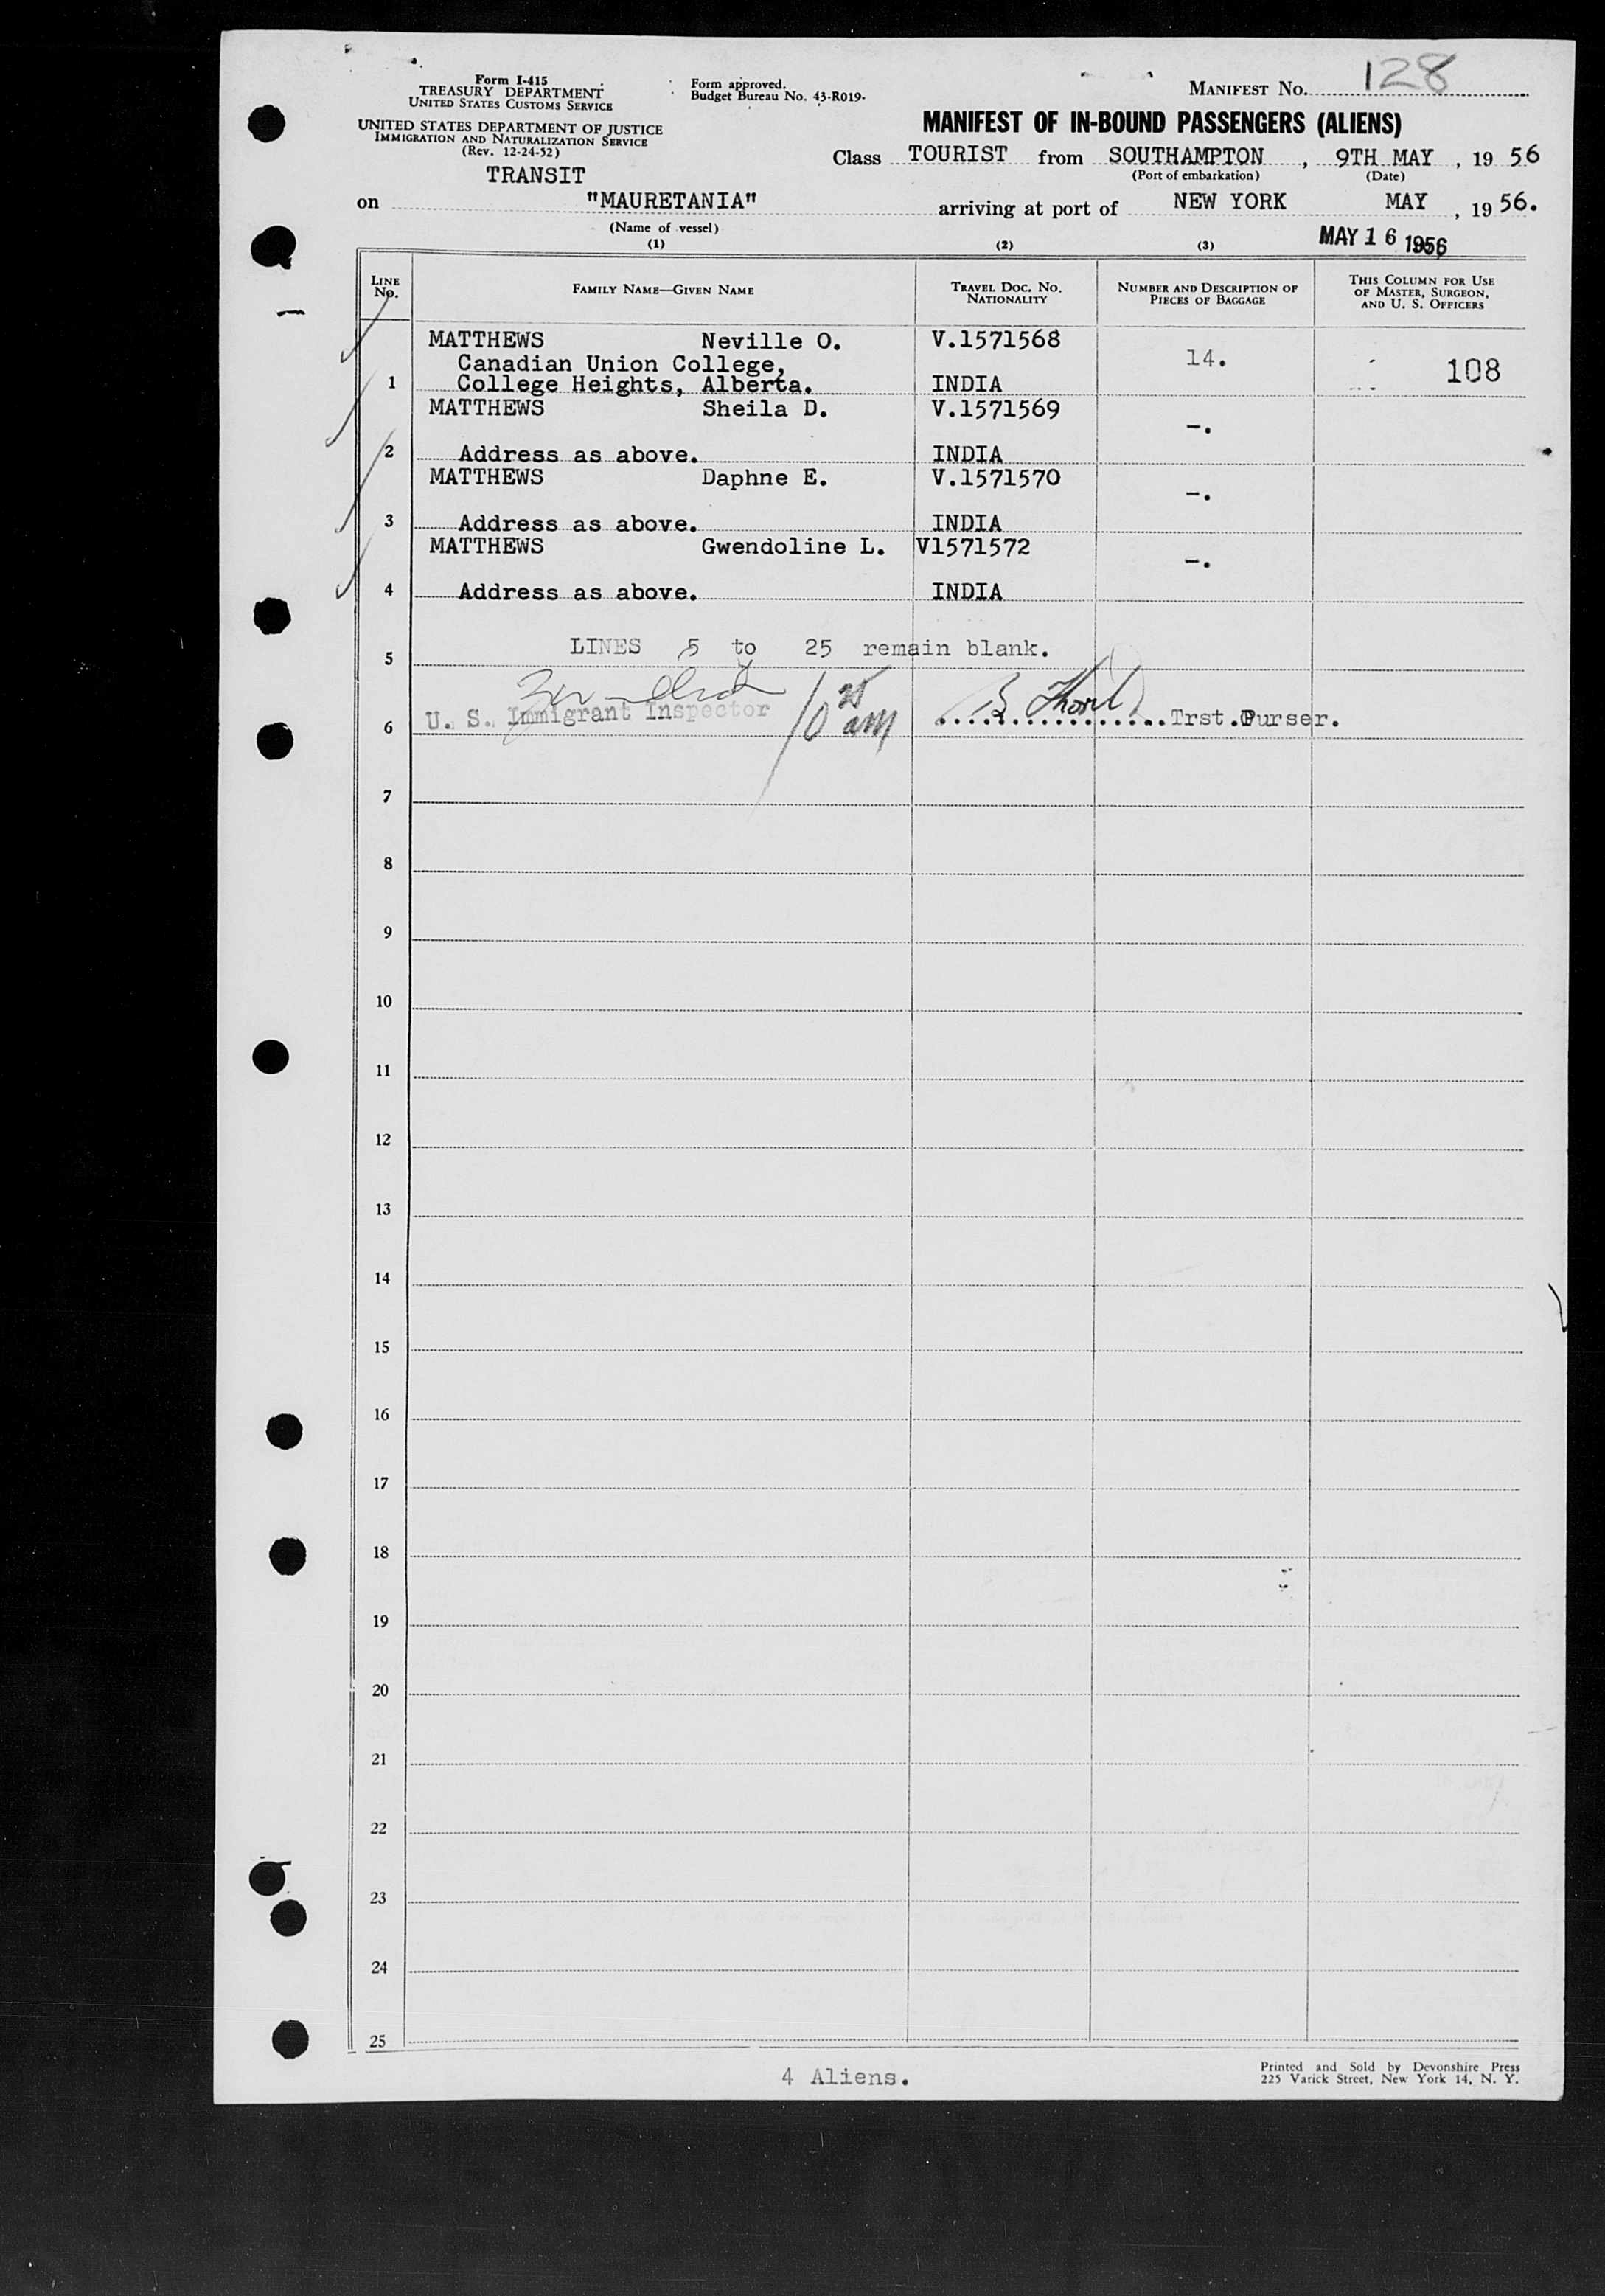 Form I-415
TREASURY DEPARTMENT
UNITED STATES CUSTOMS SERVICE
UNITED STATES DEPARTMENT OF JUSTICE
IMMIGRATION AND NATURALIZATION SERVICE
(Rev. 12-24-52)
TRANSIT
Form approved.
Budget Bureau No. 43-R019-
MANIFEST NO. 128
MANIFEST OF IN-BOUND PASSENGERS (ALIENS)
Class TOURIST from SOUTHAMPTON , 9TH MAY , 19 56
(Port of embarkation) (Date)
on "MAURETANIA" arriving at port of NEW YORK MAY , 19 56.
(Name of vessel)
MAY 16 1956
(1) (2) (3)
LINE NO. FAMILY NAME—GIVEN NAME TRAVEL DOC. NO. NATIONALITY NUMBER AND DESCRIPTION OF PIECES OF BAGGAGE THIS COLUMN FOR USE OF MASTER, SURGEON, AND U. S. OFFICERS
MATTHEWS Neville O. V.1571568
Canadian Union College, 14. 108
1 College Heights, Alberta. INDIA
MATTHEWS Sheila D. V.1571569
-.
2 Address as above. INDIA
MATTHEWS Daphne E. V.1571570
-.
3 Address as above. INDIA
MATTHEWS Gwendoline L. V1571572
-.
4 Address as above. INDIA
LINES 5 to 25 remain blank.
5
10 25 am
6 U. S. Immigrant Inspector Trst. Purser.
7
8
9
10
11
12
13
14
15
16
17
18
19
20
21
22
23
24
25
4 Aliens.
Printed and Sold by Devonshire Press
225 Varick Street, New York 14, N. Y.